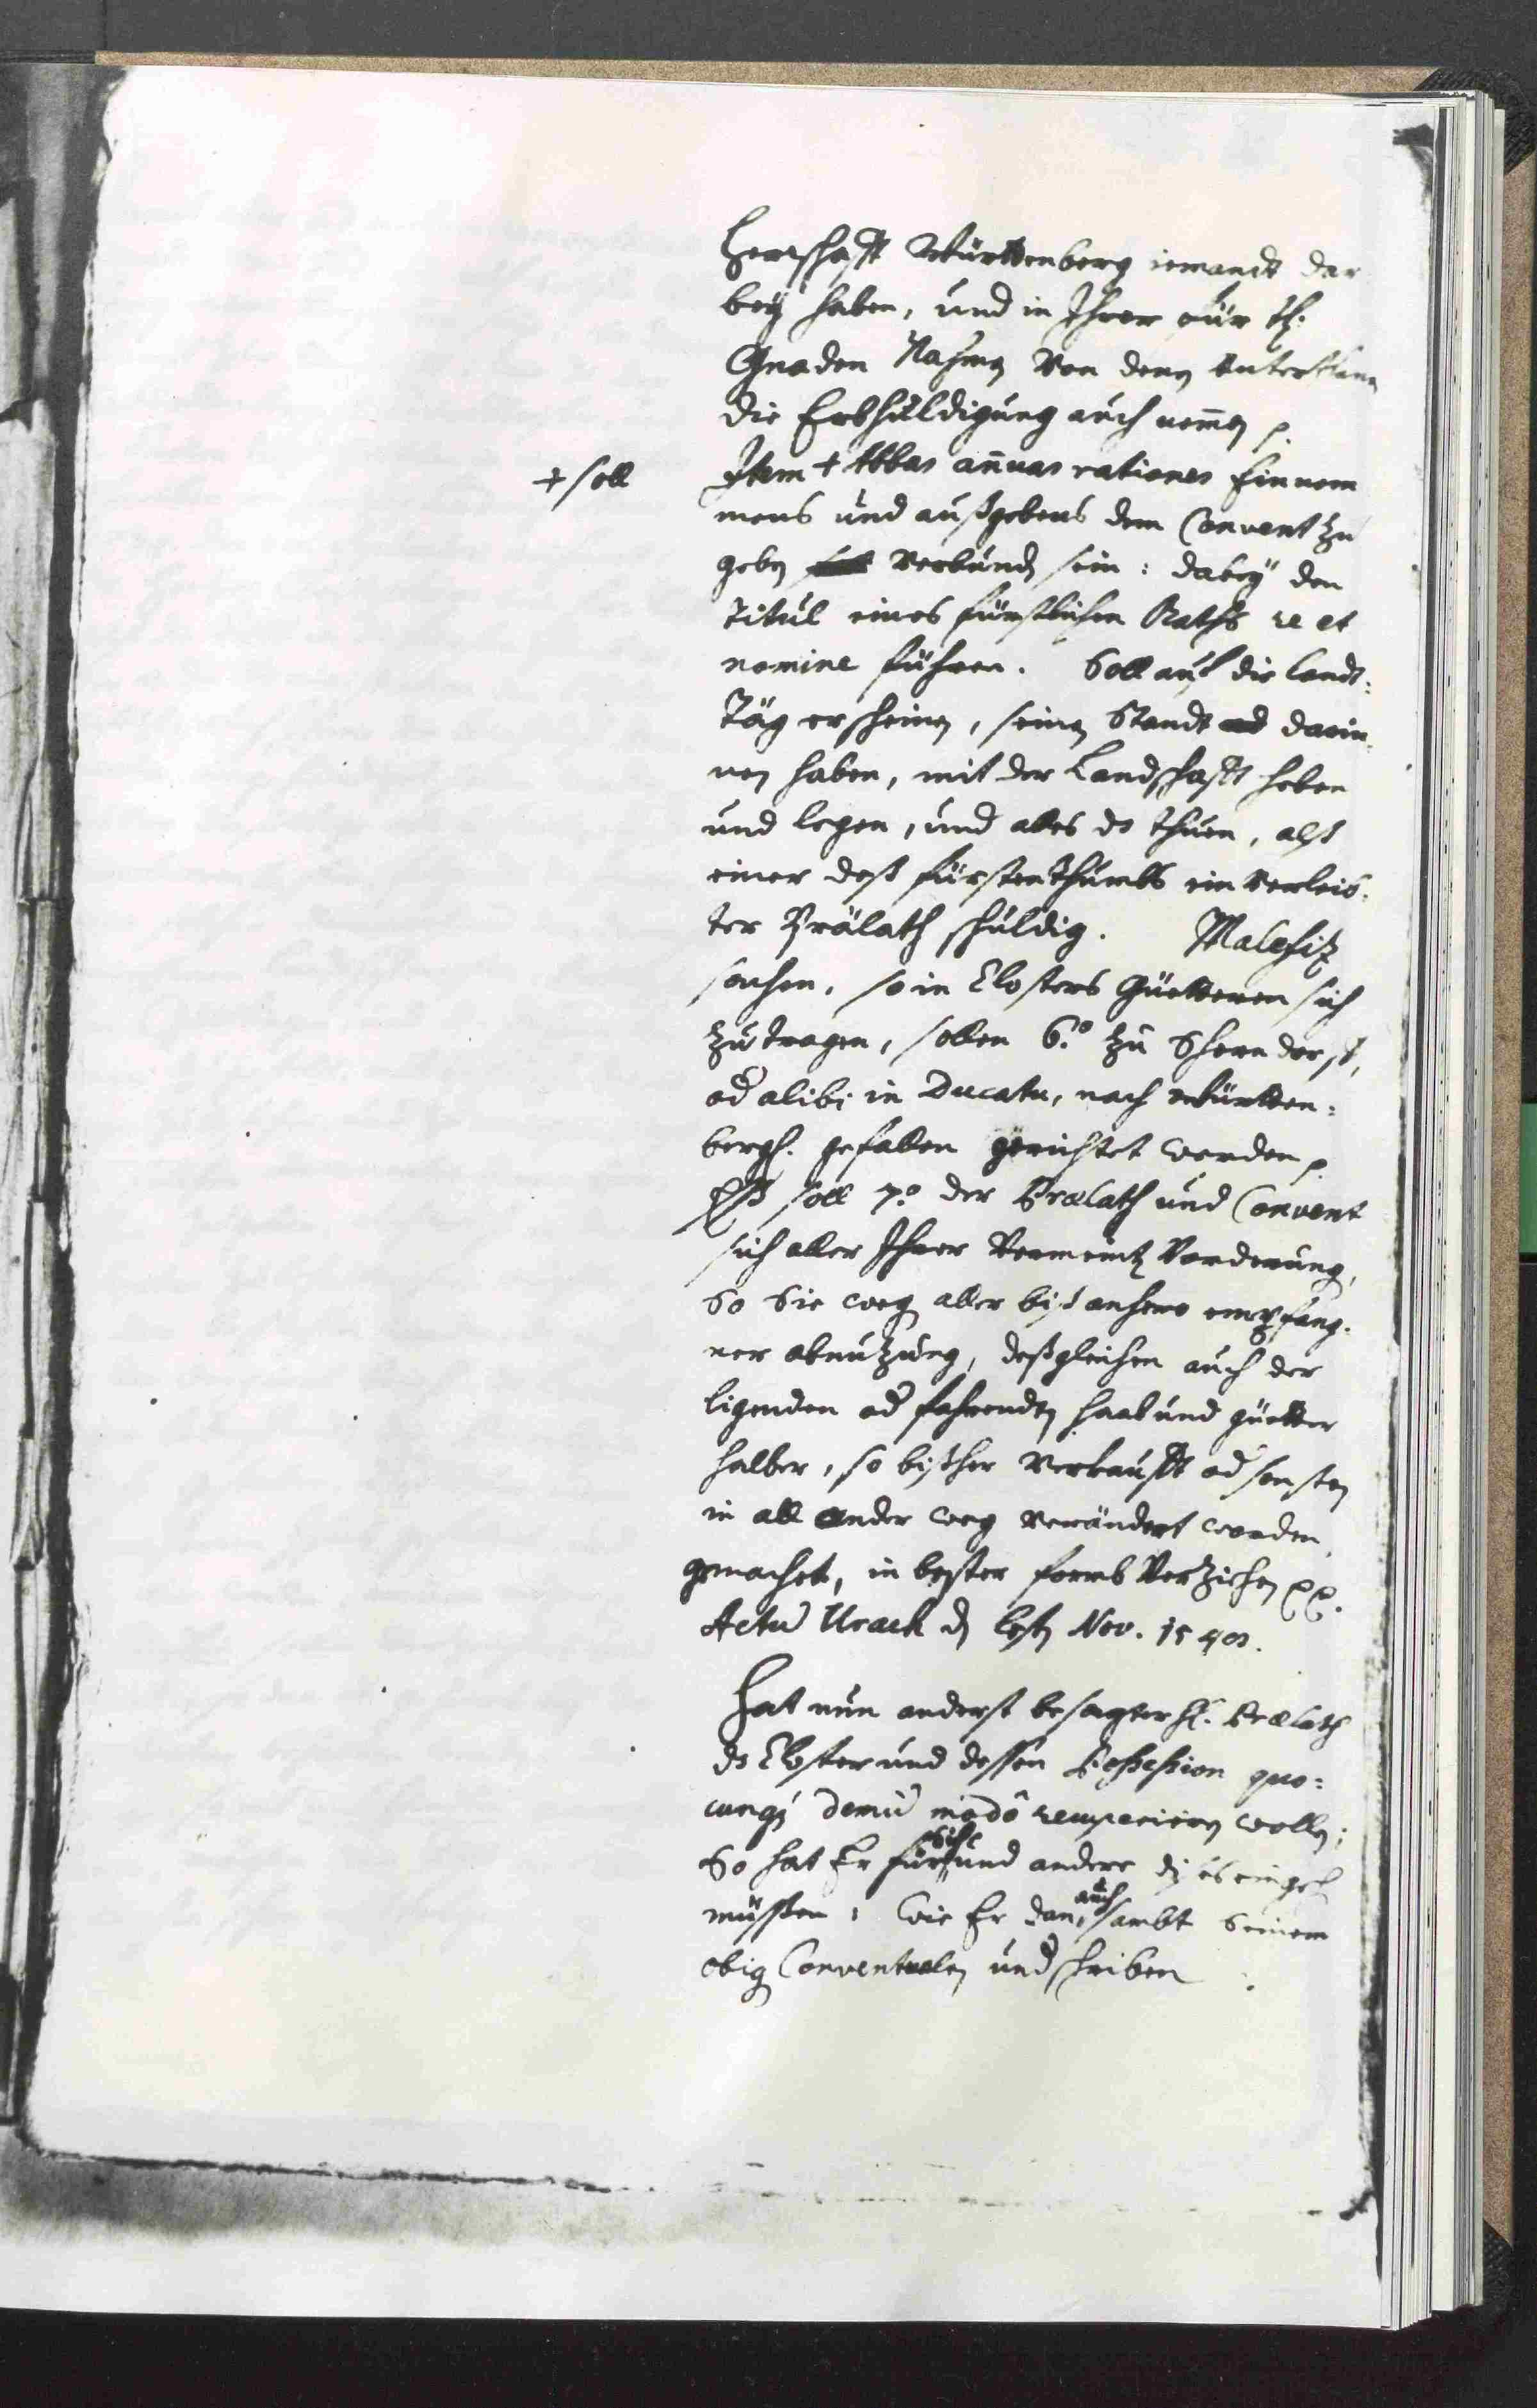 Herrschafft Württenberg iemandt dar
bey haben, und in Ihrer für stl.
Gnaden Nahmen Von denen Unterthanen
die Erbhuldigung auch nemmen p.
+ soll
Item + Abbas annuas rationes Einnem
mens und außgebens dem Convent zu
geben verbunden sein: dabey den
Titul eines fürstlichen Raths re et
nomine führen. Soll auf die landt:
Täg erscheinen, seinen Standt darin
nen haben, mit der Landschafft heben
und legen, und alles ds thuen, alß
einer deß fürstenthumbs ein verleib.
ter Prälath schuldig. Malefitz
sachen, so in Closters Güetteren sich
zutragen, sollen 6.o zu Scherndorff,
od alibi in Ducatu, nach Württen:
bergs. gefallen gerichtet werden p.
Eß soll 7.o der Prælath und Convent
sich aller Ihrer Vermeint Vorderung,
So Sie weg aller biß anhero empfang.
ner abnutzung, deßgleichen auch der
ligenden od fahrenden haab und güetter
halber, so bißher verkaufft od sonsten
in all ander weg verändert worden,
gemachet, in bester formb Verzichen pp.
Actu Urach d letsten Nov. 15
Hat nun anderst besagter H. Prælath
ds Closter und dessen Possession quo:
cunq demu modo recuperiren wollen;
So hat Er für sich und andere es eingeh
müssen: wie Er dan auch, sambt seinem
obig Conventualen undschriben